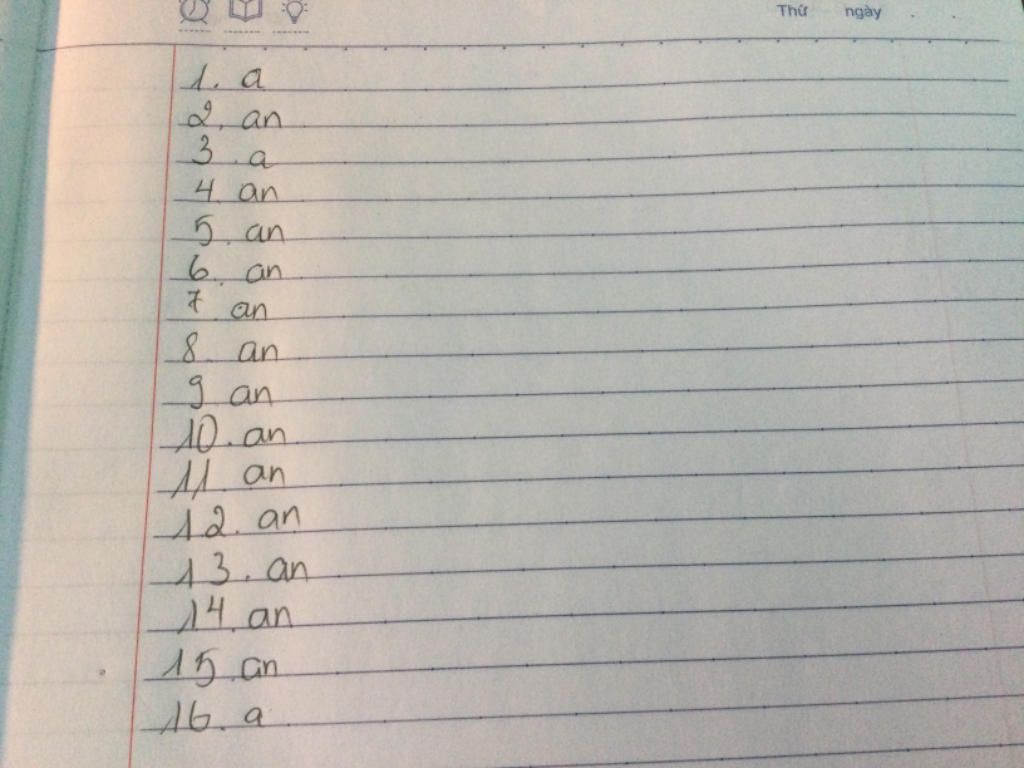 Thứ ngày . .
1. a
2. an
3. a
4. an
5. an
6. an
7 an
8. an
9 an
10. an
11 an
12. an
13. an
14. an
15. an
16. a